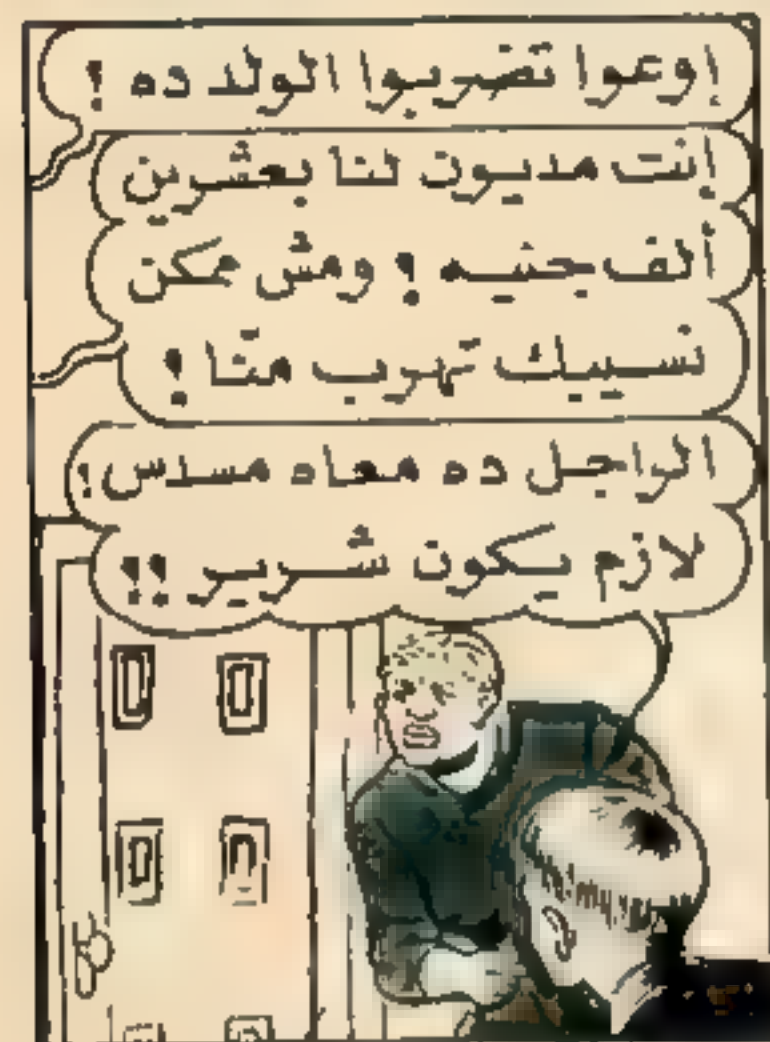 إوعوا تضربوا الولد ده !
إنت مديون لنا بعشرين
ألف جنيه ! ومش ممكن
نسيبك تهرب منّا !
الراجل ده معاه مسدس !
لازم يكون شرير !!